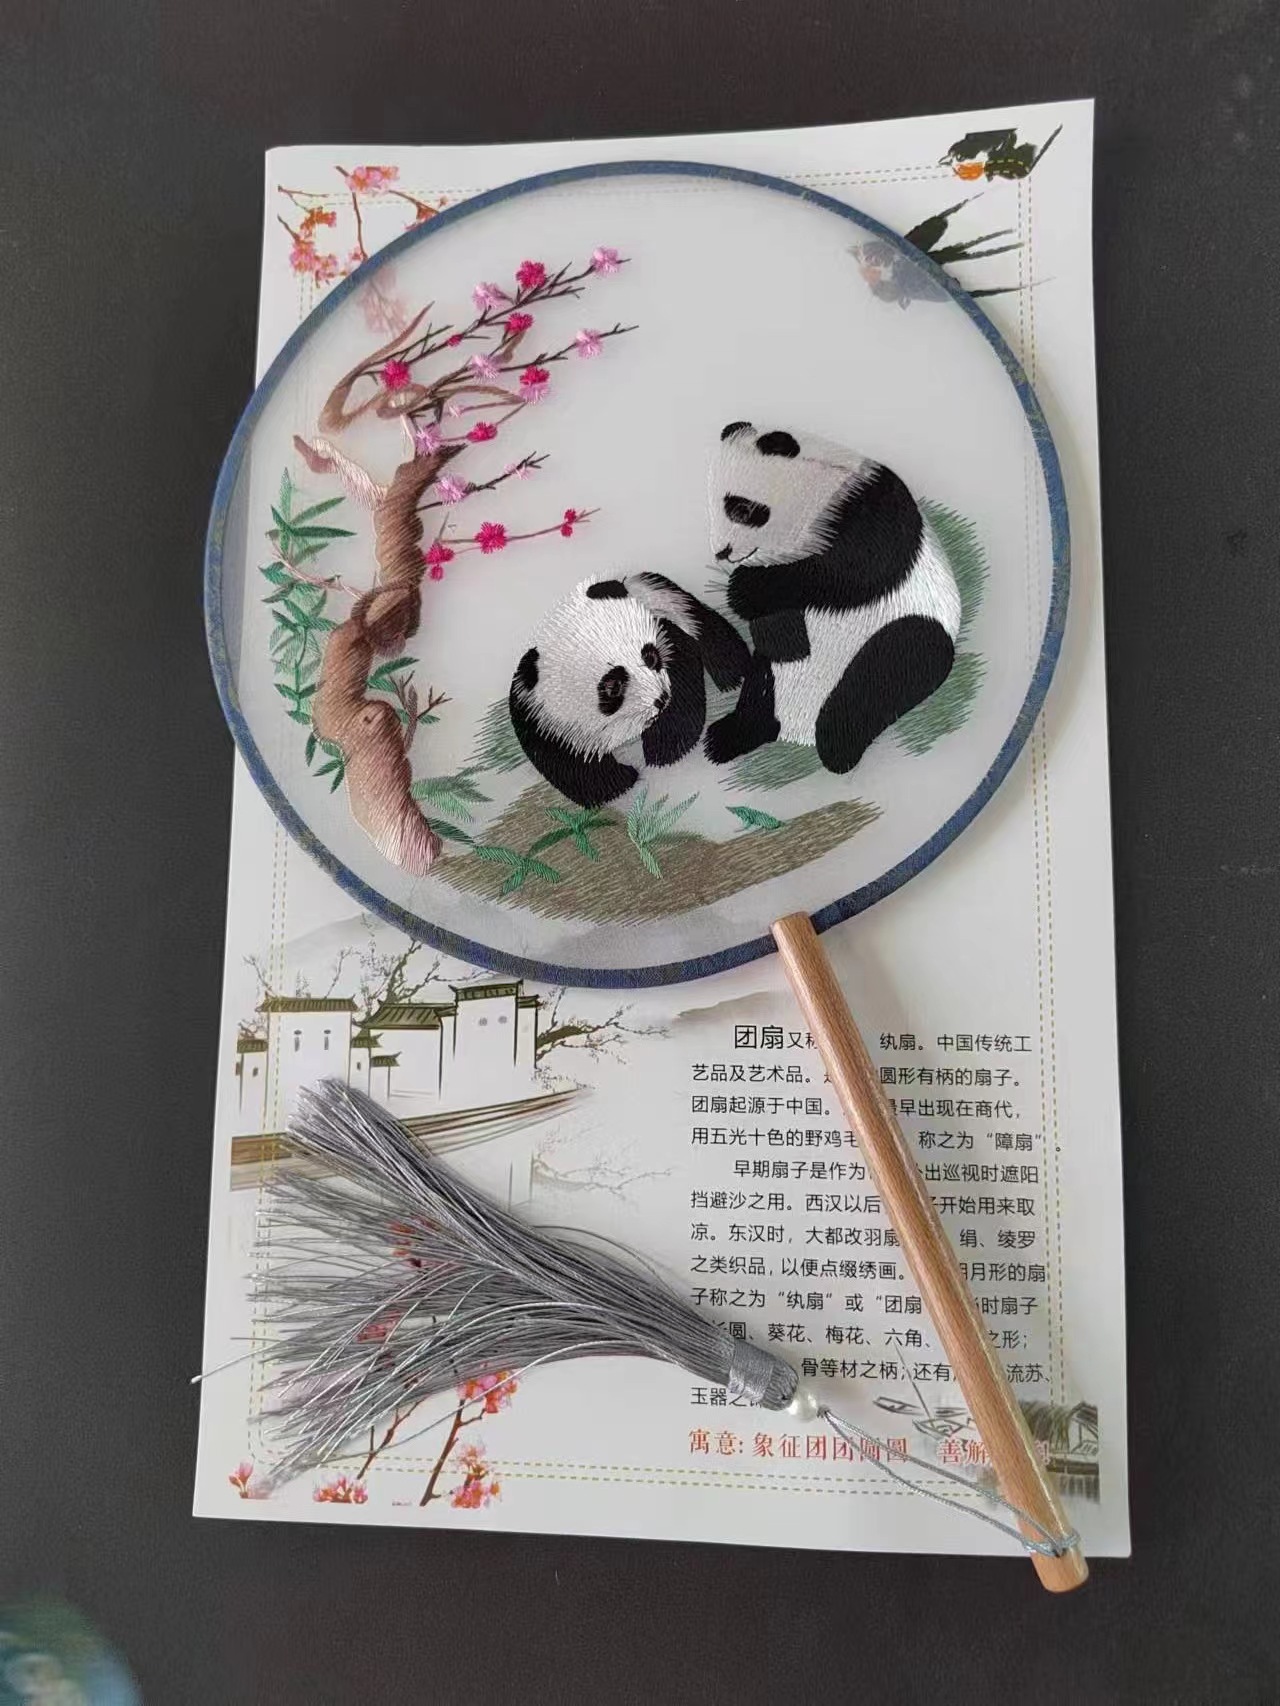 团扇又称 纨扇。中国传统工
艺品及艺术品。 圆形有柄的扇子。
团扇起源于中国。 最早出现在商代，
用五光十色的野鸡毛 称之为“障扇”。
早期扇子是作为 外出巡视时遮阳
挡避沙之用。西汉以后 子开始用来取
凉。东汉时，大都改羽扇 绢、绫罗
之类织品，以便点缀绣画。 明月形的扇
子称之为“纨扇”或“团扇 当时扇子
长圆、葵花、梅花、六角、 之形；
骨等材之柄；还有 流苏、
玉器之
寓意：象征团团圆圆 善解